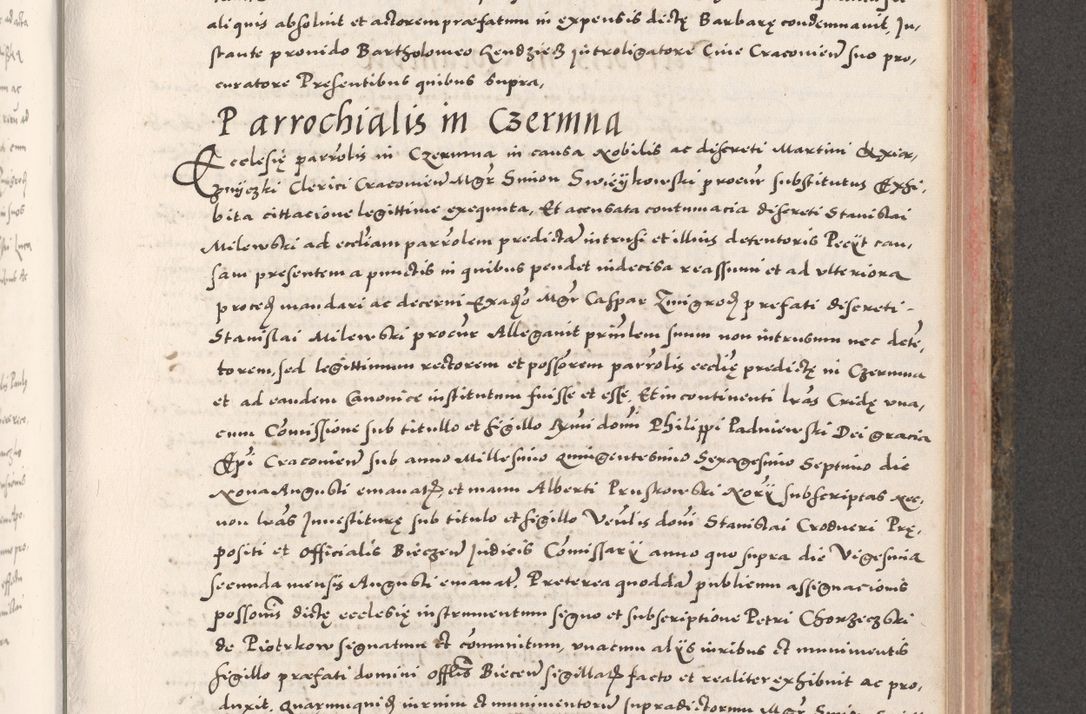 aliquis absoluit et actorem præfatum in expensis dictę Barbarę condemnauit, Ju-
stante prouido Bartholomeo Kendzierz Jntroligatore Ciue Cracouien̄ suo pro-
curatore Presentibus quibus supra,
Parrochialis in Czermna
Ecclesię parrōlis in Czermna in causa Nobilis ac discreti Martini
Clerici Cracouien̄ Mgr̄ Simon Swieykowski procur̄ substitutus Exhi-
bita cittacione legittime exequuta, Et accusata contumacia discreti Stanislai
Milewski ad eccliam parrōlem predictā intrusi et illius detentoris Pecyt cau-
sam presentem a punctis in quibus pendet indecisa reassumi et ad vlteriora
proced̄ mandari ac decerni Exadūo Mgr̄ Caspar Zmigrod̄ prefati discreti
Stanislai Milewski procur̄ Allegauit prīnlem suum non intrusum nec dete-
torem, sed legittimum rectorem et possōrem parrōlis ecclię predictę in Czermna
et ad eandem Canonice institutum fuisse et esse, Et in continenti lrās Cridę vna-
cum Cōmissione sub titullo et sigillo Rṁi domī Philippi Padniewski Dei gracia
Epī Cracouien̄ sub anno Millesimo Quingentesimo Sexagesimo Septimo die
Nona Augusti emanat̄ et manu Alberti Pruskowski Norȳ subscriptas Nec-
non lrās Jnuestiturę sub titulo et sigillo Venlis domī Stanislai Crodneri Prę-
positi et Officialis Bieczen̄ Judicis Cōmissarȳ anno quo supra die Vigesima
secunda mensis Augusti emanat̄. Preterea quoddā publicum assignacionis
possōnis dictę ecclesię instrumentum signo et subscriptione Petri Chorzeczski
de Piotrkow signatum et cōmunitum, vnacum alys iuribus et munimentis
sigillo præfati domini offlis Biecen̄ sigillat̄ facto et realiter exhibuit ac pro-
duxit. Quarumquid̄ iurium et munimentorū supradictorum Mgr̄